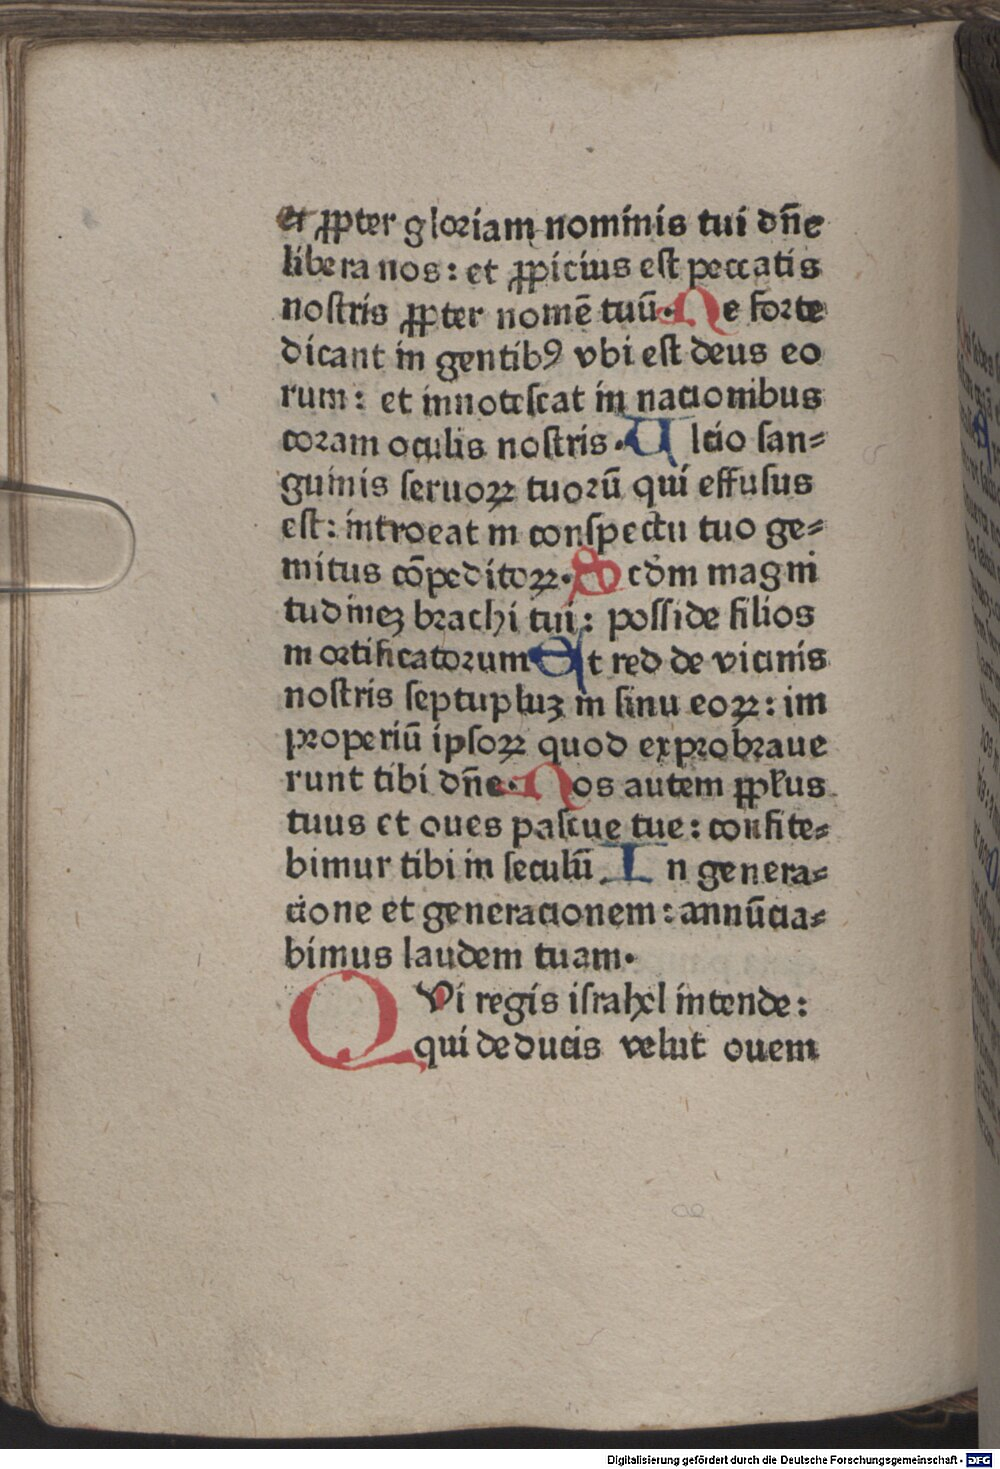 et ꝓpter gloriam nominis tui dñe
libera nos: et ꝓpicius est peccatis
nostris ꝓpter nomē tuū. Ne forte
dicant in gentibꝰ vbi est deus eo
rum: et innotescat in nacionibus
coram oculis nostris. Ultio san⸗
guinis seruoꝝ tuorū qui effusus
est: introeat in conspectu tuo ge⸗
mitus cōpeditoꝝ. Scḋm magni
tudineꝫ brachi tui: posside filios
mortificatorum Et red de vicinis
nostris septupluꝫ in sinu eoꝝ: im
properiū ipsoꝝ quod exprobraue
runt tibi dñe. Nos autem ꝓpl̄us
tuus et oues pascue tue: confite⸗
bimur tibi in seculū In genera⸗
cione et generacionem: annūcia⸗
bimus laudem tuam.
QVi regis israhel intende:
qui deducis velut ouem
Digitalisierung gefördert durch die Deutsche Forschungsgemeinschaft - DFG